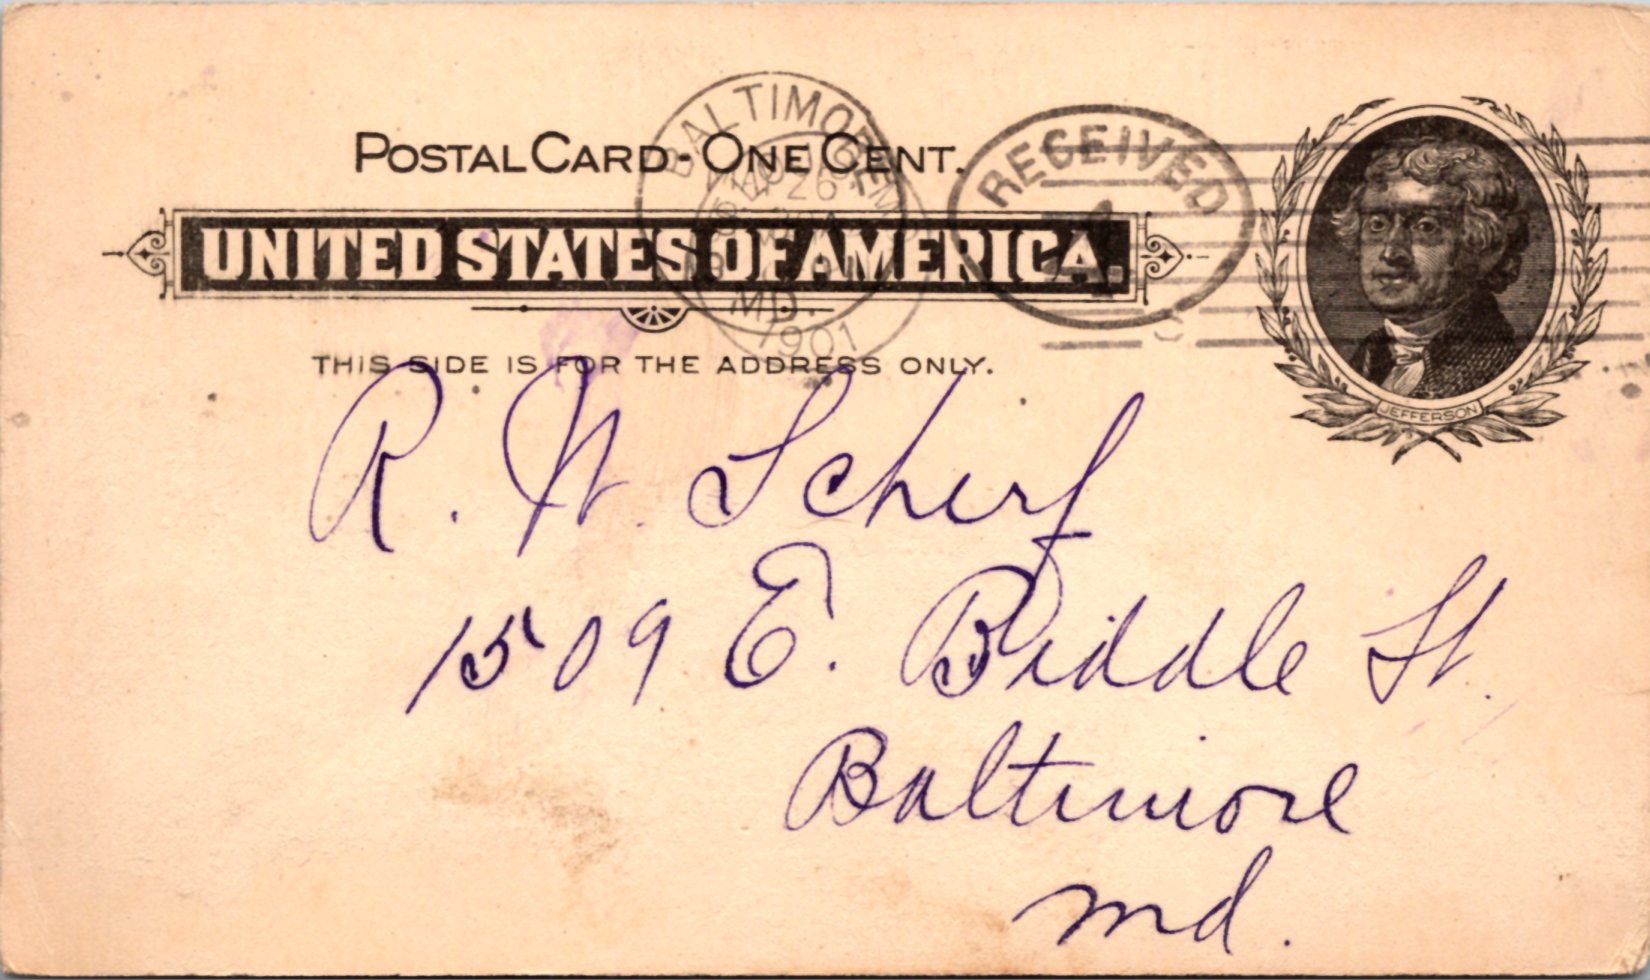 POSTAL CARD - ONE CENT.
BALTIMORE
26
MD.
1901
RECEIVED
UNITED STATES OF AMERICA.
JEFFERSON
THIS SIDE IS FOR THE ADDRESS ONLY.
R. W. Scherf
1509 E. Biddle St.
Baltimore
Md.